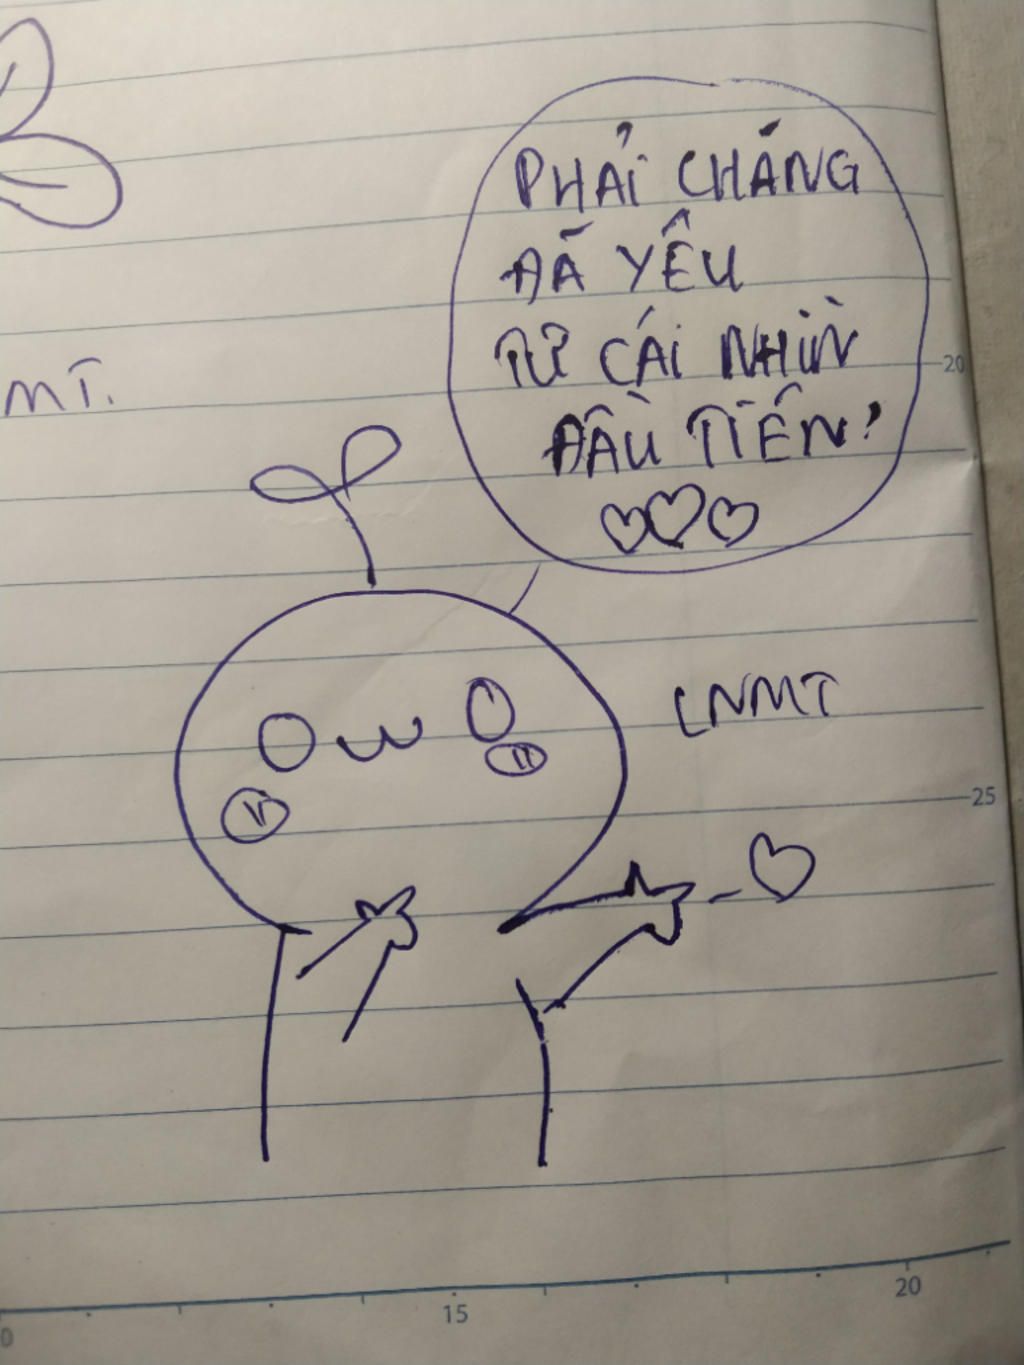 PHẢI CHĂNG
ĐÃ YÊU
TỪ CÁI NHÌN
ĐẦU TIÊN?
MT.
20
OWO
LNMT
25
15
20